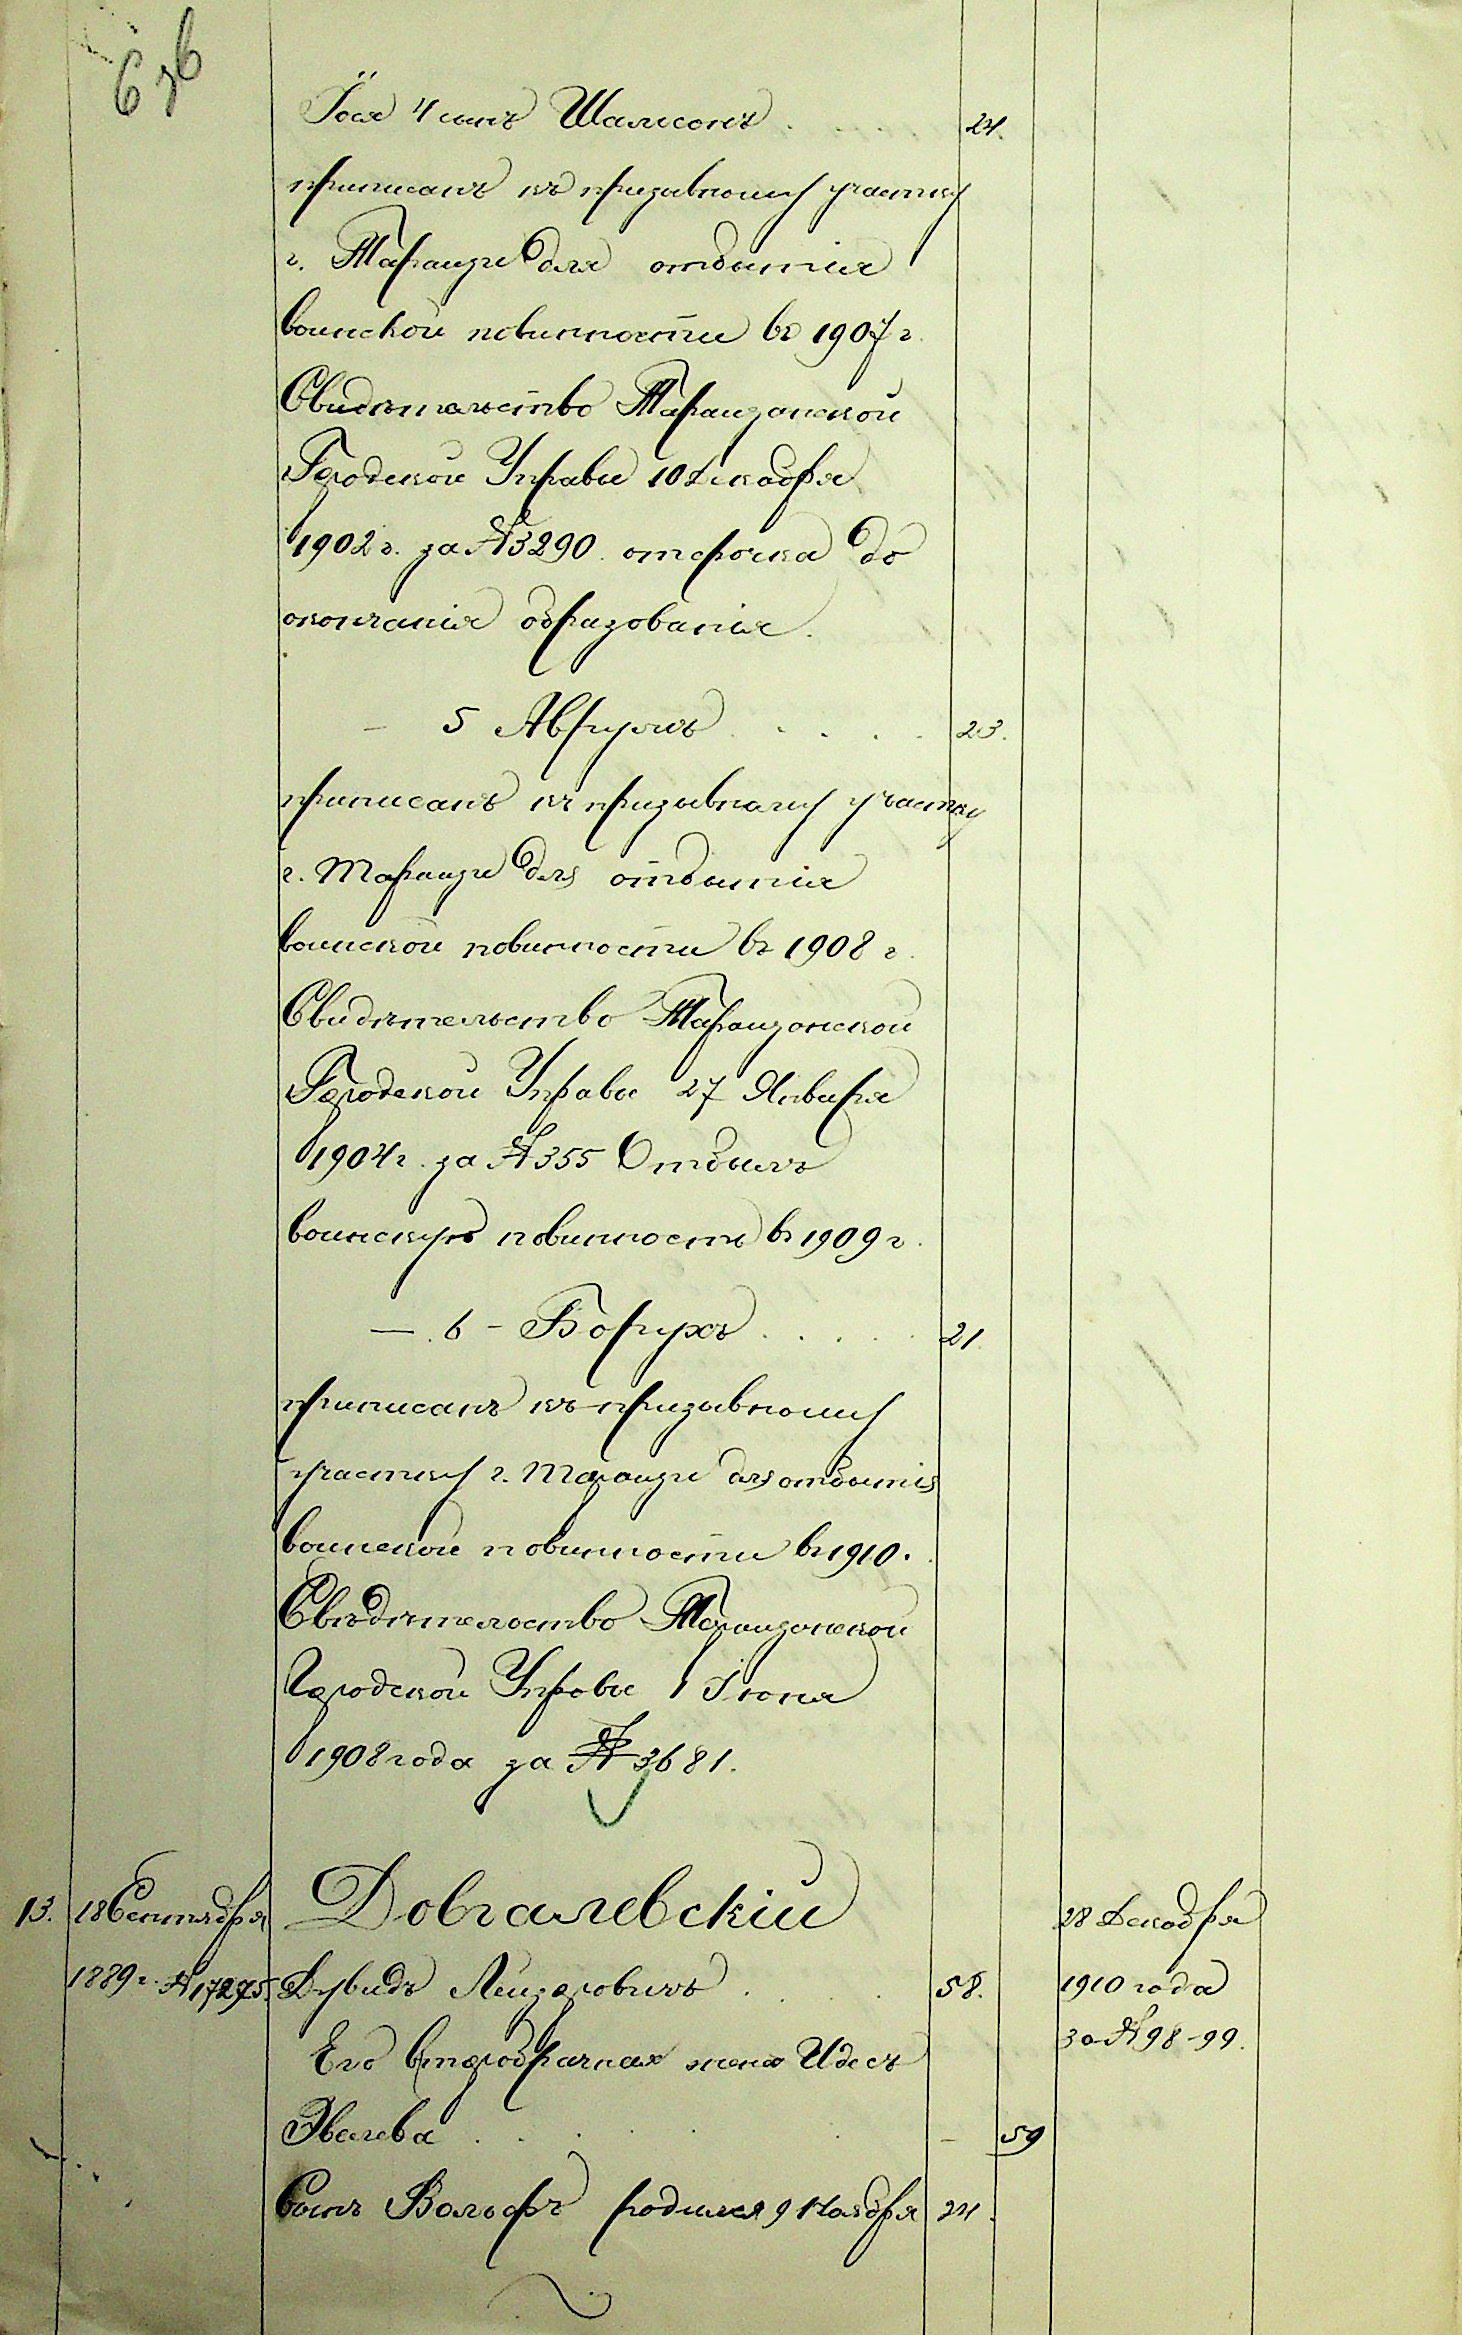 Его 4 сынъ Шамсонъ . . . . . 24.
приписанъ къ призывному участку
г. Таращи для отбытія
воинской повинности въ 1907 г.
Свидѣтельство Таращанской
Городской Управы 10 Декабря
1902 г. за № 3290. отсрочка до
окончанія образованія.
— 5 Аврумъ . . . . . 23.
приписанъ къ призывному участку
г. Таращи для отбытія
воинской повинности въ 1908 г.
Свидѣтельство Таращанской
Городской Управы 27 Января
1904 г. за № 355 Отбылъ
воинскую повинность въ 1909 г.
— 6 — Борухъ . . . . . 21.
приписанъ къ призывному
участку г. Таращи для отбытія
воинской повинности въ 1910.
Свѣдѣтельство Таращанской
Городской Управы 1 Іюня
1908 года за № 3681.
13. 18 Сентября Довгалевскій 28 Декабря
1889 г. № 17275. Дувидъ Лейзеровичъ . . . . 58. 1910 года
за № 98-99.
Его второбрачная жена Идесъ
Эвелева . . . . . — 59
Сынъ Вольфъ родился 9 Ноября 24.